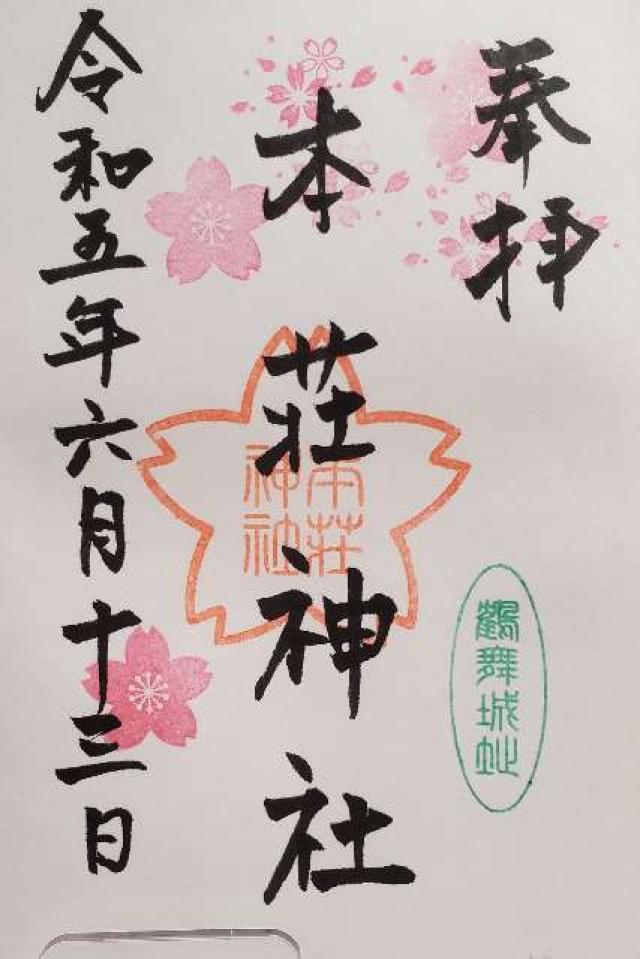 奉拝
本荘神社
令和五年六月十三日
本荘
神社
鶴舞城址